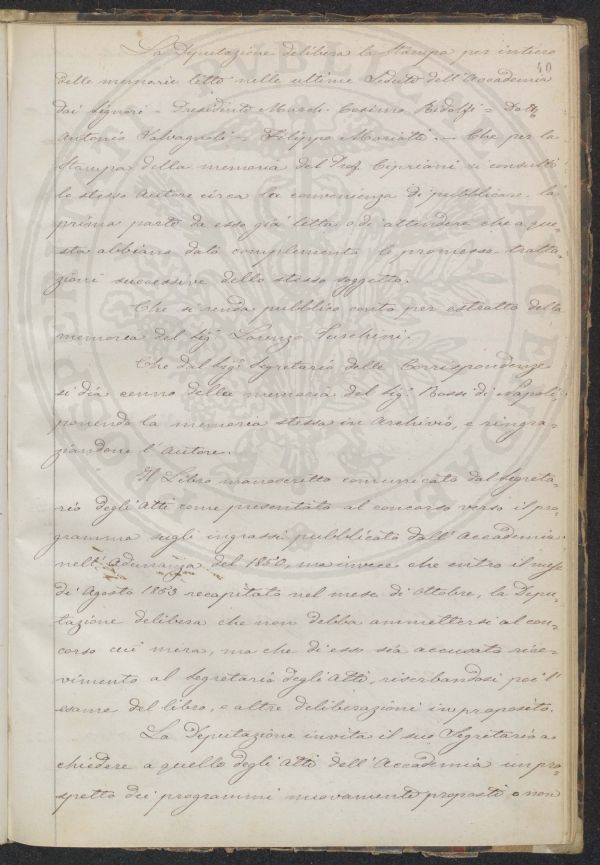 40
La Deputazione delibera la Stampa per intiero
delle memorie lette nelle ultime Sedute dell'Accademia
dai Signori = Presidente March. Cosimo Ridolfi = Dott.
Antonio Salvagnoli = Filippo Mariotti. = Che per la
Stampa della memoria del Prof. Cipriani si consulti
lo stesso Autore circa la convenienza di pubblicare la
prima parte da esso già letta o di attendere che a que-
sta abbiano dato complemento le promesse tratta-
zioni successive dello stesso soggetto.
Che si renda pubblico conto per estratto della
memoria del Sig. Lorenzo
Che dal Sig. Segretario delle Corrispondenze
si dia cenno della memoria del Sig. Rossi di Napoli
ponendo la memoria stessa in Archivio, e ringra-
ziandone l'Autore.
Il Libro manoscritto comunicato dal Segreta-
rio degli Atti come presentato al concorso verso il pro-
gramma sugli ingrassi pubblicato dall'Accademia
nell'Adunanza del 1850, ma invece che entro il mese
di Agosto 1853 recapitato nel mese di Ottobre, la Depu-
tazione delibera che non debba ammettersi al con-
corso cui mira, ma che di esso sia accusato rice-
vimento al Segretario degli Atti, riserbandosi poi l'
esame del libro, e altre deliberazioni in proposito.
La Deputazione invita il suo Segretario a
chiedere a quello degli Atti dell'Accademia un pro-
spetto dei programmi nuovamente proposti o non
PROSPERITATI PUBLICAE AUGENDAE